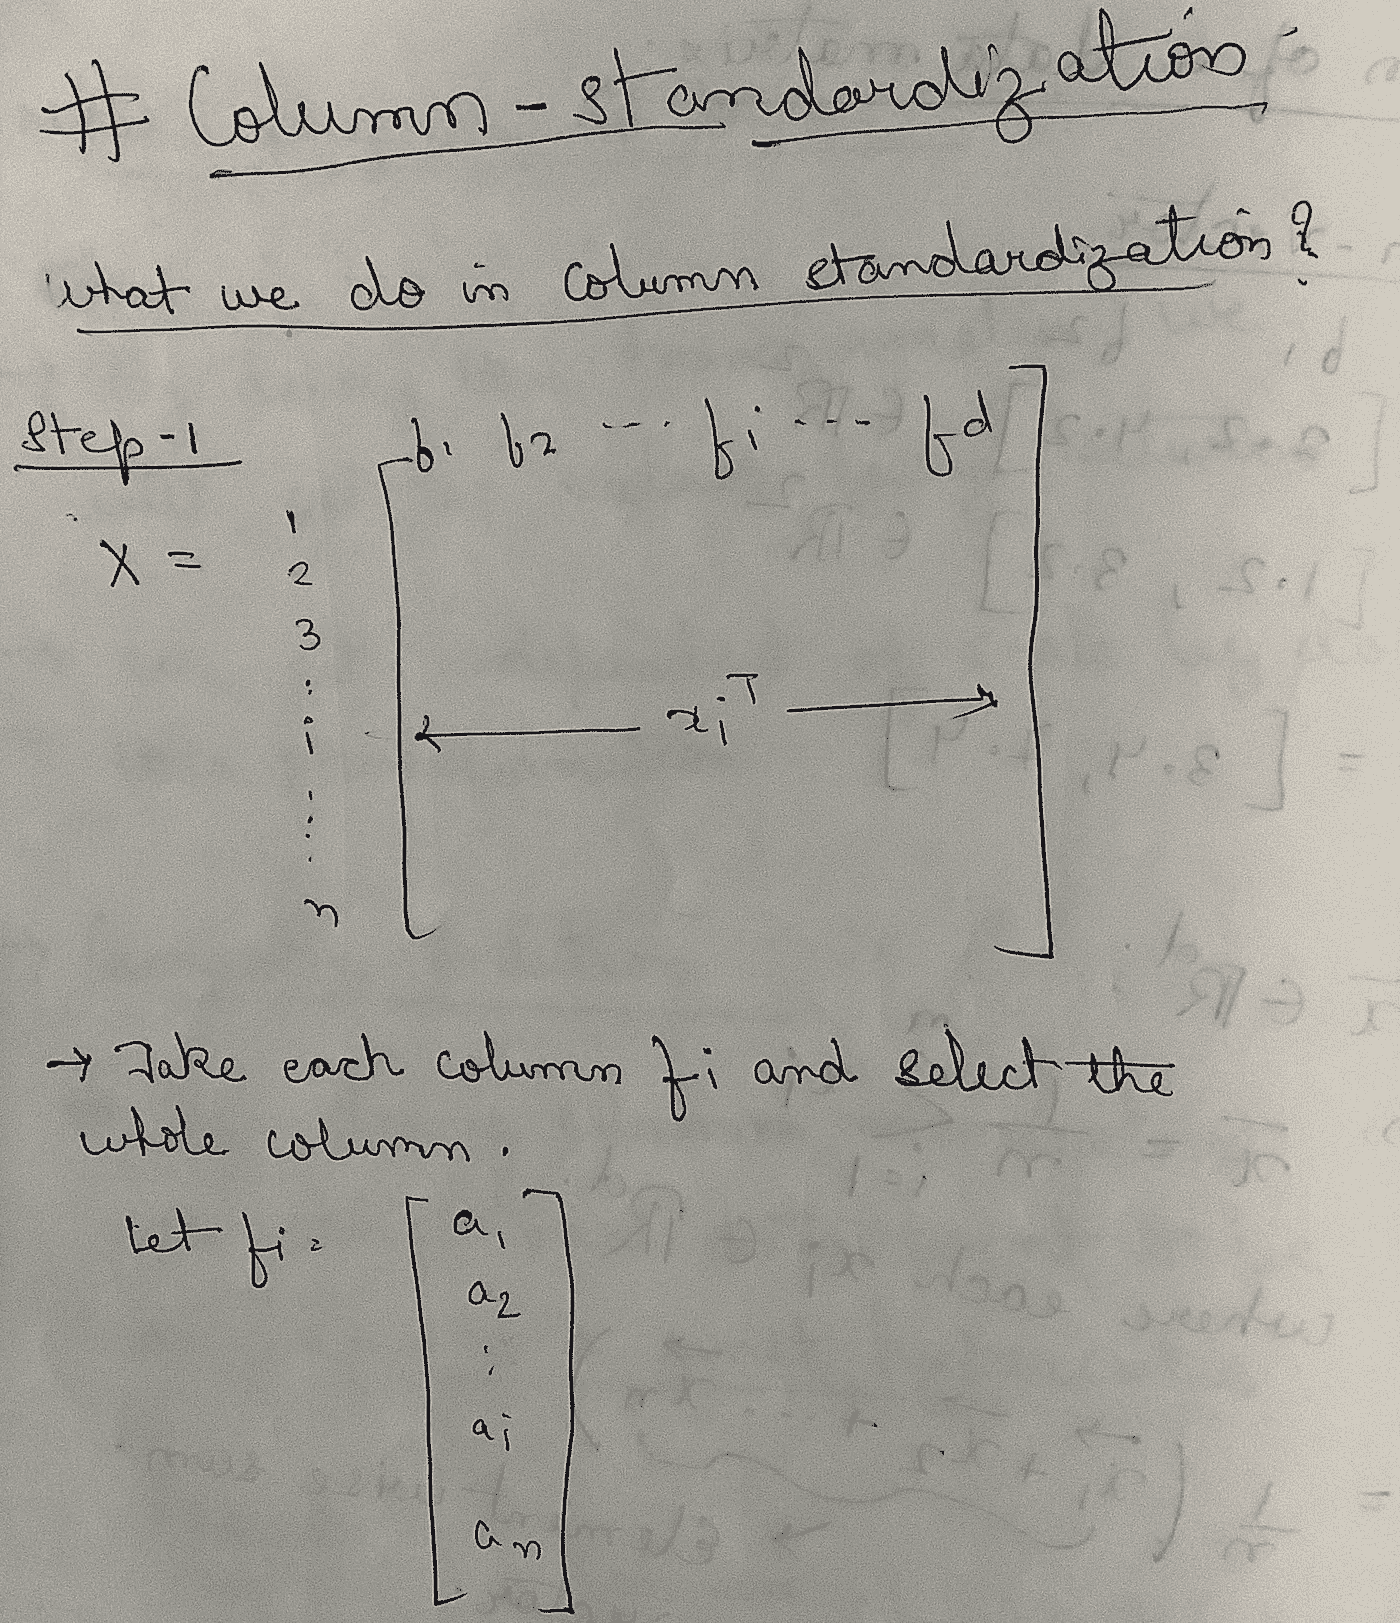 # Column - standardization
What we do in column standardization?
Step-1
f1 f2 --- fi --- fd
X =
1
2
3
:
i
:
n
← xiT →
→ Take each column fi and select the
whole column.
Let fi =
a1
a2
:
ai
an